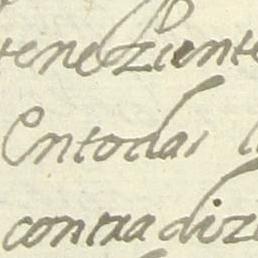 teneziente
En todas l
contradiz